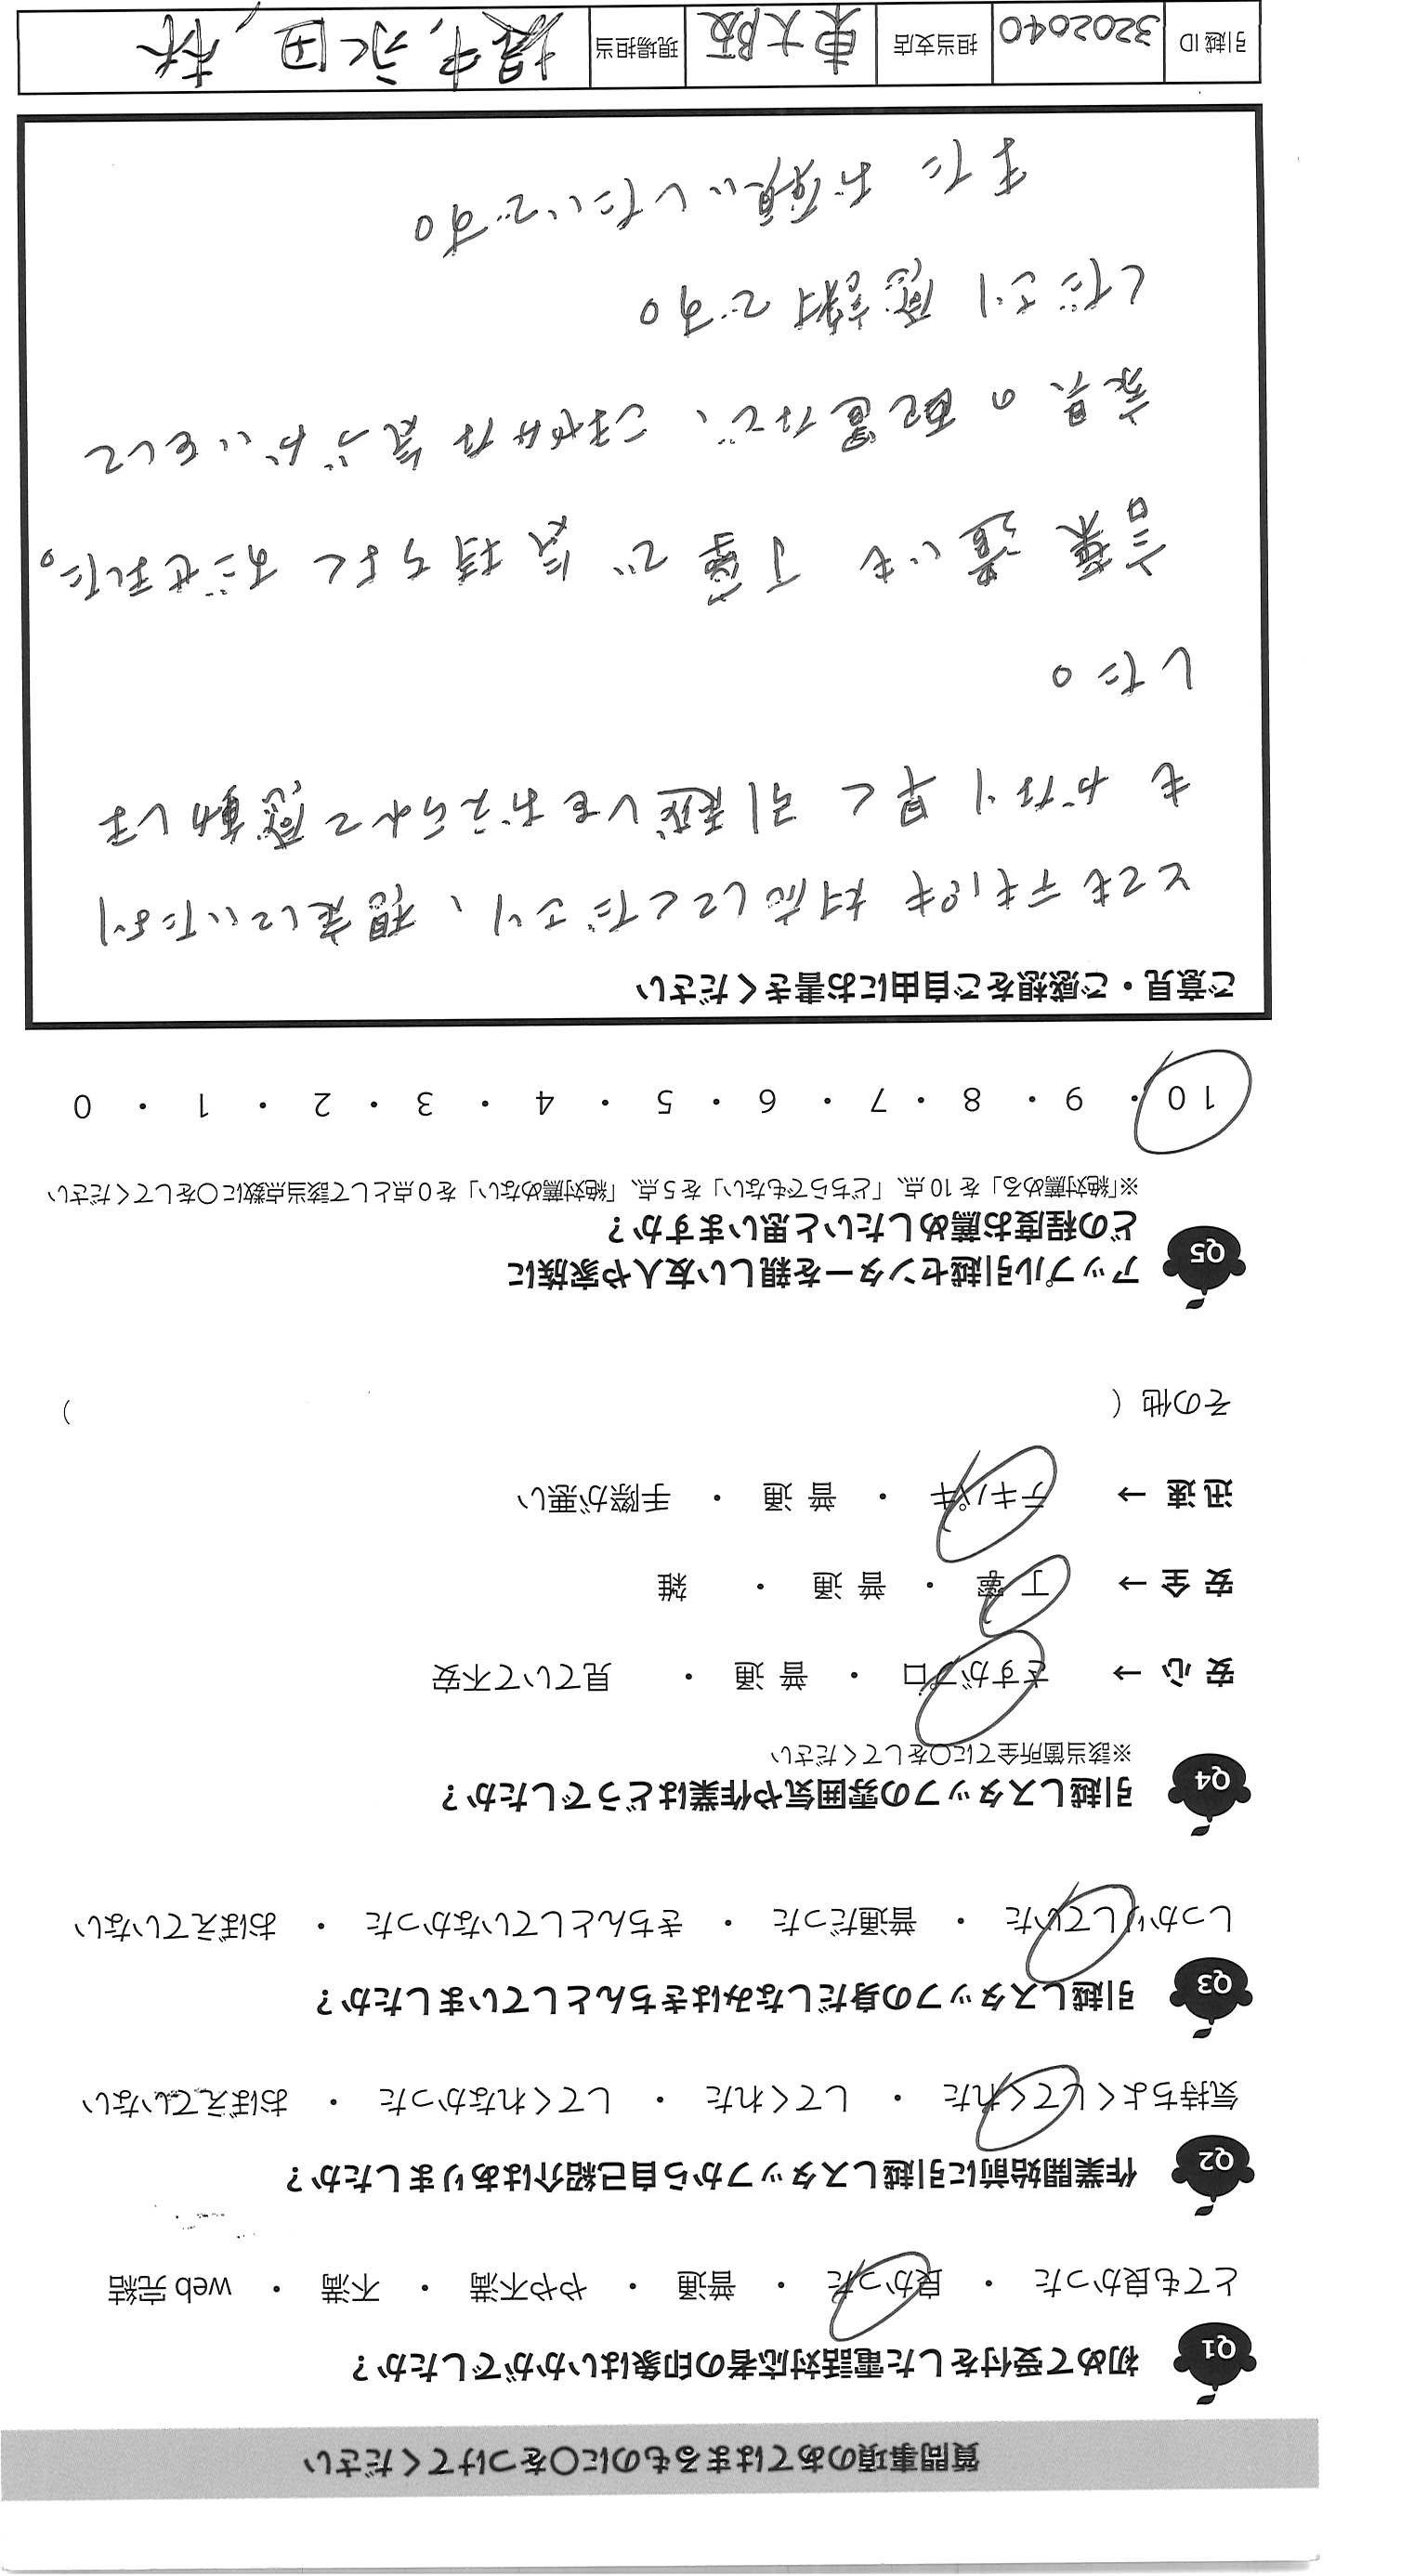 質問事項のあてはまるものに〇をつけてください
Q1 初めて受付をした電話対応者の印象はいかがでしたか？
とても良かった ・ 良かった ・ 普通 ・ やや不満 ・ 不満 ・ web 完結
Q2 作業開始前に引越しスタッフから自己紹介はありましたか？
気持ちよくしてくれた ・ してくれた ・ してくれなかった ・ おぼえていない
Q3 引越しスタッフの身だしなみはきちんとしていましたか？
しっかりしていた ・ 普通だった ・ きちんとしていなかった ・ おぼえていない
Q4 引越しスタッフの雰囲気や作業はどうでしたか？
※該当箇所全てに〇をしてください
安心 → さすがプロ ・ 普通 ・ 見ていて不安
安全 → 丁寧 ・ 普通 ・ 雑
迅速 → テキパキ ・ 普通 ・ 手際が悪い
その他（ ）
Q5 アップル引越センターを親しい友人や家族に
どの程度お薦めしたいと思いますか？
※「絶対薦める」を10点、「どちらでもない」を5点、「絶対薦めない」を0点として該当点数に〇をしてください
10 ・ 9 ・ 8 ・ 7 ・ 6 ・ 5 ・ 4 ・ 3 ・ 2 ・ 1 ・ 0
ご意見・ご感想をご自由にお書きください
とてもテキパキ対応してくださり、想定していたより
もかなり早く引越しをおえられて感動しま
した。
言葉遣いも丁寧で気持ちよくすごせました。
家具の配置など、こまやかな気づかいをして
くださり感謝です。
またお願いしたいです。
引越ID 3202040 担当支店 東大阪 現場担当 堀井, 永田, 林